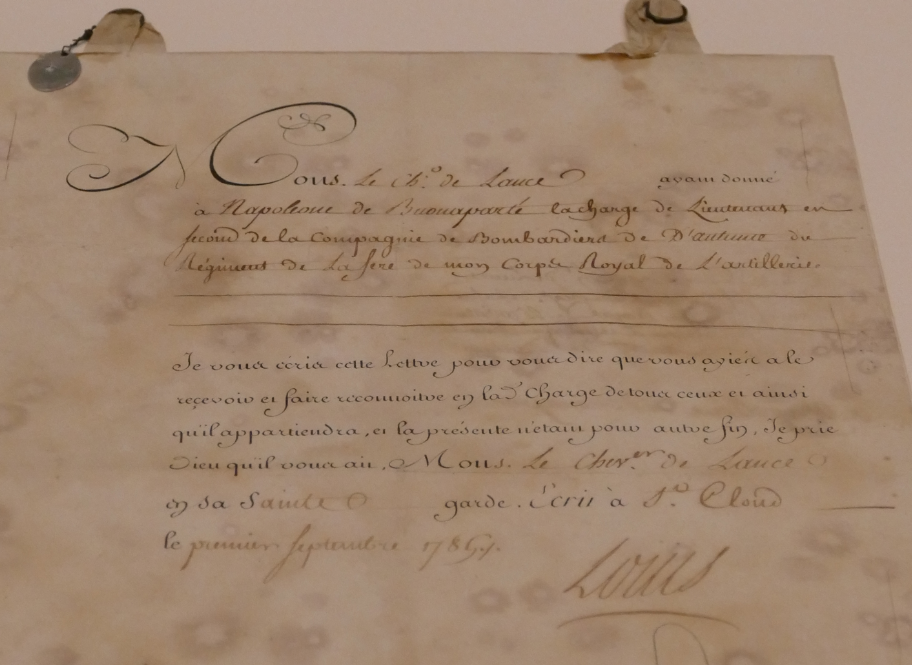 Mons. Le Ch.er de Lance ayant donné
à Napoleone de Buonaparté la charge de Lieutenant en
second de la Compagnie de Bombardiers de D'autume du
Régiment de La fere de mon Corps Royal de L'artillerie.
Je vous écris cette Lettre pour vous dire que vous ayiéz a le
recevoir et faire reconnoitre en lad.e Charge de tous ceux et ainsi
qu'il appartiendra, et la présente n'étant pour autre fin, Je prie
Dieu qu'il vous ait, Mons. Le Chev.er de Lance
en sa Sainte garde. Ecrit à S.t Cloud
le premier septembre 1785.
Louis